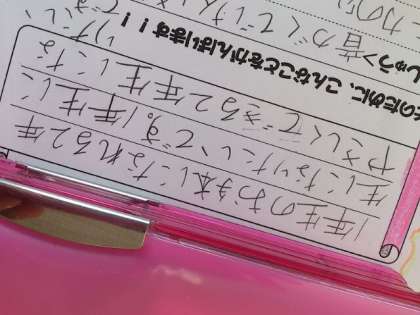 1年生のお手本になれる2年
生になりたいです。1年生に
やさしくできる2年生にな
りた
そのために、こんなことをがんばります！！
しゅう＞音がくでけん